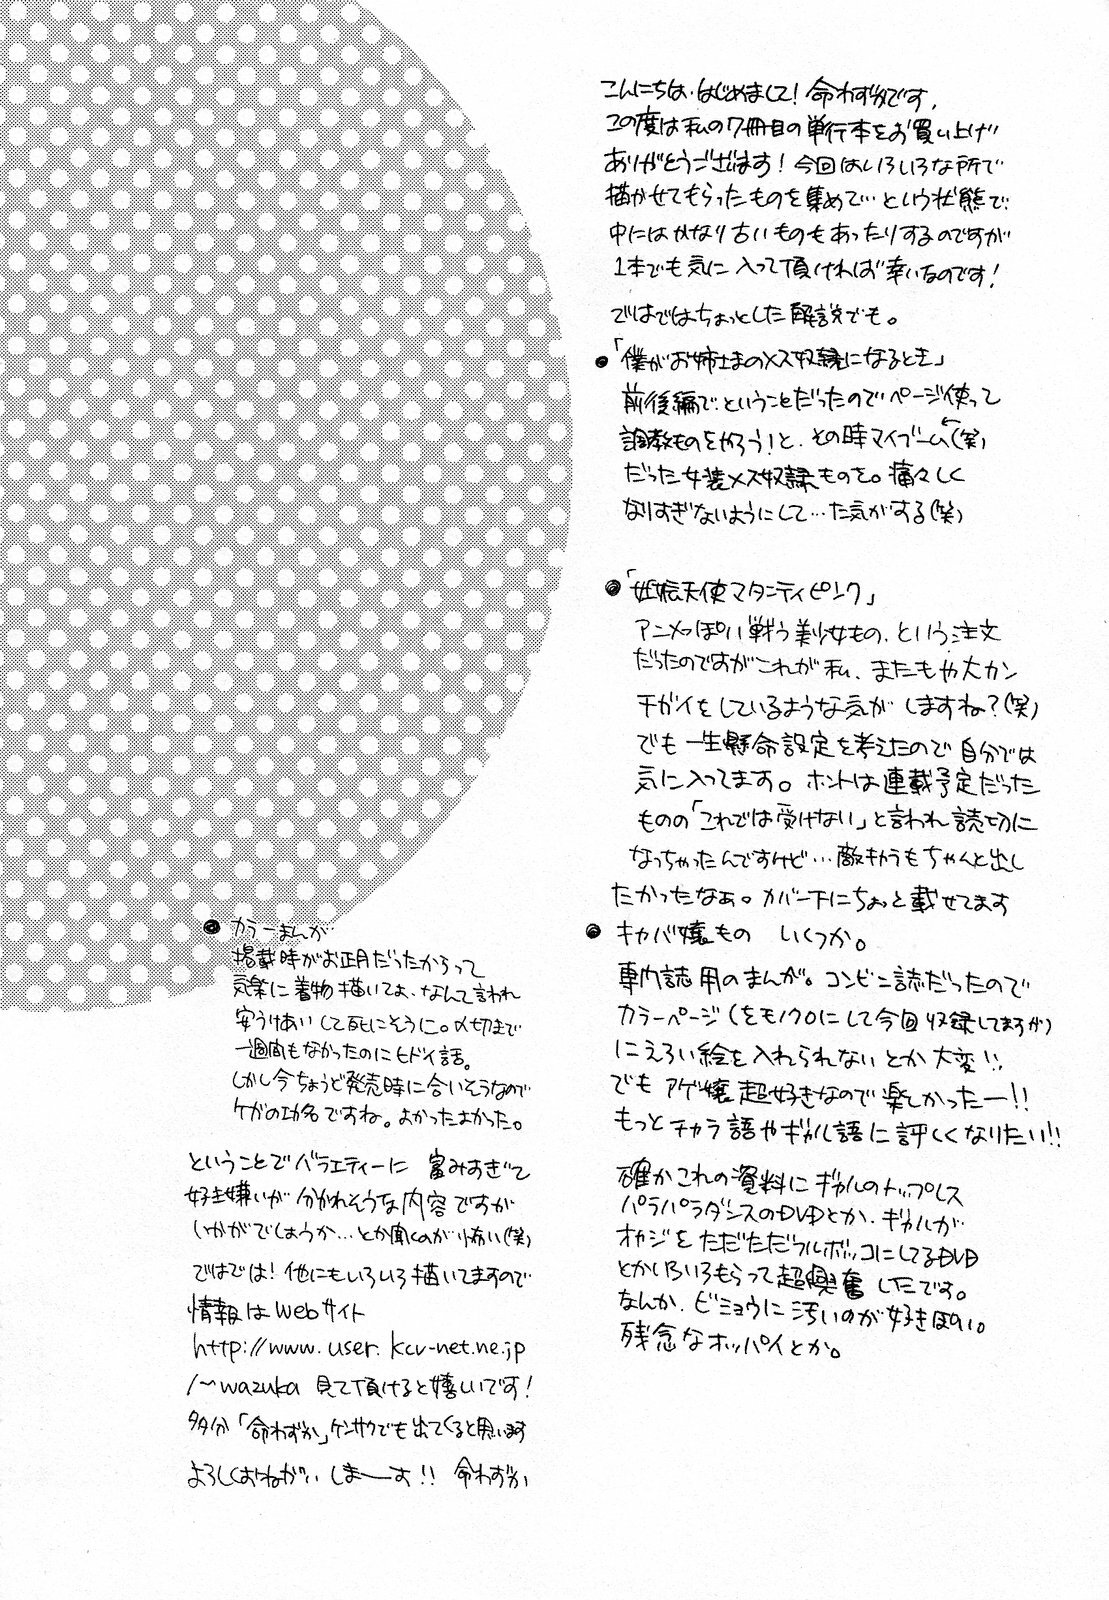 こんにちは、はじめまして！命わずかです。
この度は私の7冊目の単行本をお買い上げ
ありがとうございます！今回はいろいろな所で
描かせてもらったものを集めて…という状態で
中にはかなり古いものもあったりするのですが
1本でも気に入って頂ければ幸いなのです！
ではではちょっとした解説でも。
●「僕がお姉さまのメス奴隷になるとき」
前後編で、ということだったのでページ使って
調教ものをやろう！と、その時マイブーム(笑)
だった女装メス奴隷ものを。痛々しく
なりすぎないようにして…た気がする(笑)
●「妊娠天使マタニティピンク」
アニメっぽい戦う美少女もの、という注文
だったのですがこれが私、またもや大カン
チガイをしているような気がしますね？(笑)
でも一生懸命設定を考えたので自分では
気に入ってます。ホントは連載予定だった
ものの「これでは受けない」と言われ読切に
なっちゃったんですけど…敵キャラもちゃんと出し
たかったなぁ。カバー下にちょっと載せてます
●キャバ嬢もの いくつか。
専門誌用のまんが。コンビニ誌だったので
カラーページ(をモノクロにして今回収録してますが)
にえろい絵を入れられないとか大変!!
でもアゲ嬢超好きなので楽しかったー!!
もっとチャラ語やギャル語に詳しくなりたい!!
確かこれの資料にギャルのトップレス
パラパラダンスのDVDとか、ギャルが
オヤジをただただフルボッコにしてるDVD
とかいろいろもらって超興奮したです。
なんか、ビミョウに汚いのが好きぽい。
残念なオッパイとか。
●カラーまんが
掲載時がお正月だったからって
気楽に着物描いてよ、なんて言われ
安うけあいして死にそうに。〆切まで
一週間もなかったのにヒドイ話。
しかし今ちょうど発売時に合いそうなので
ケガの功名ですね。よかったよかった。
ということでバラエティーに富みすぎて
好き嫌いが分かれそうな内容ですが
いかがでしょうか…とか聞くのが怖い(笑)
ではでは！他にもいろいろ描いてますので
情報はWebサイト
http://www.user.kcv-net.ne.jp
/~wazuka 見て頂けると嬉しいです！
多分「命わずか」ケンサクでも出てくると思います
よろしくおねがいしまーす!! 命わずか